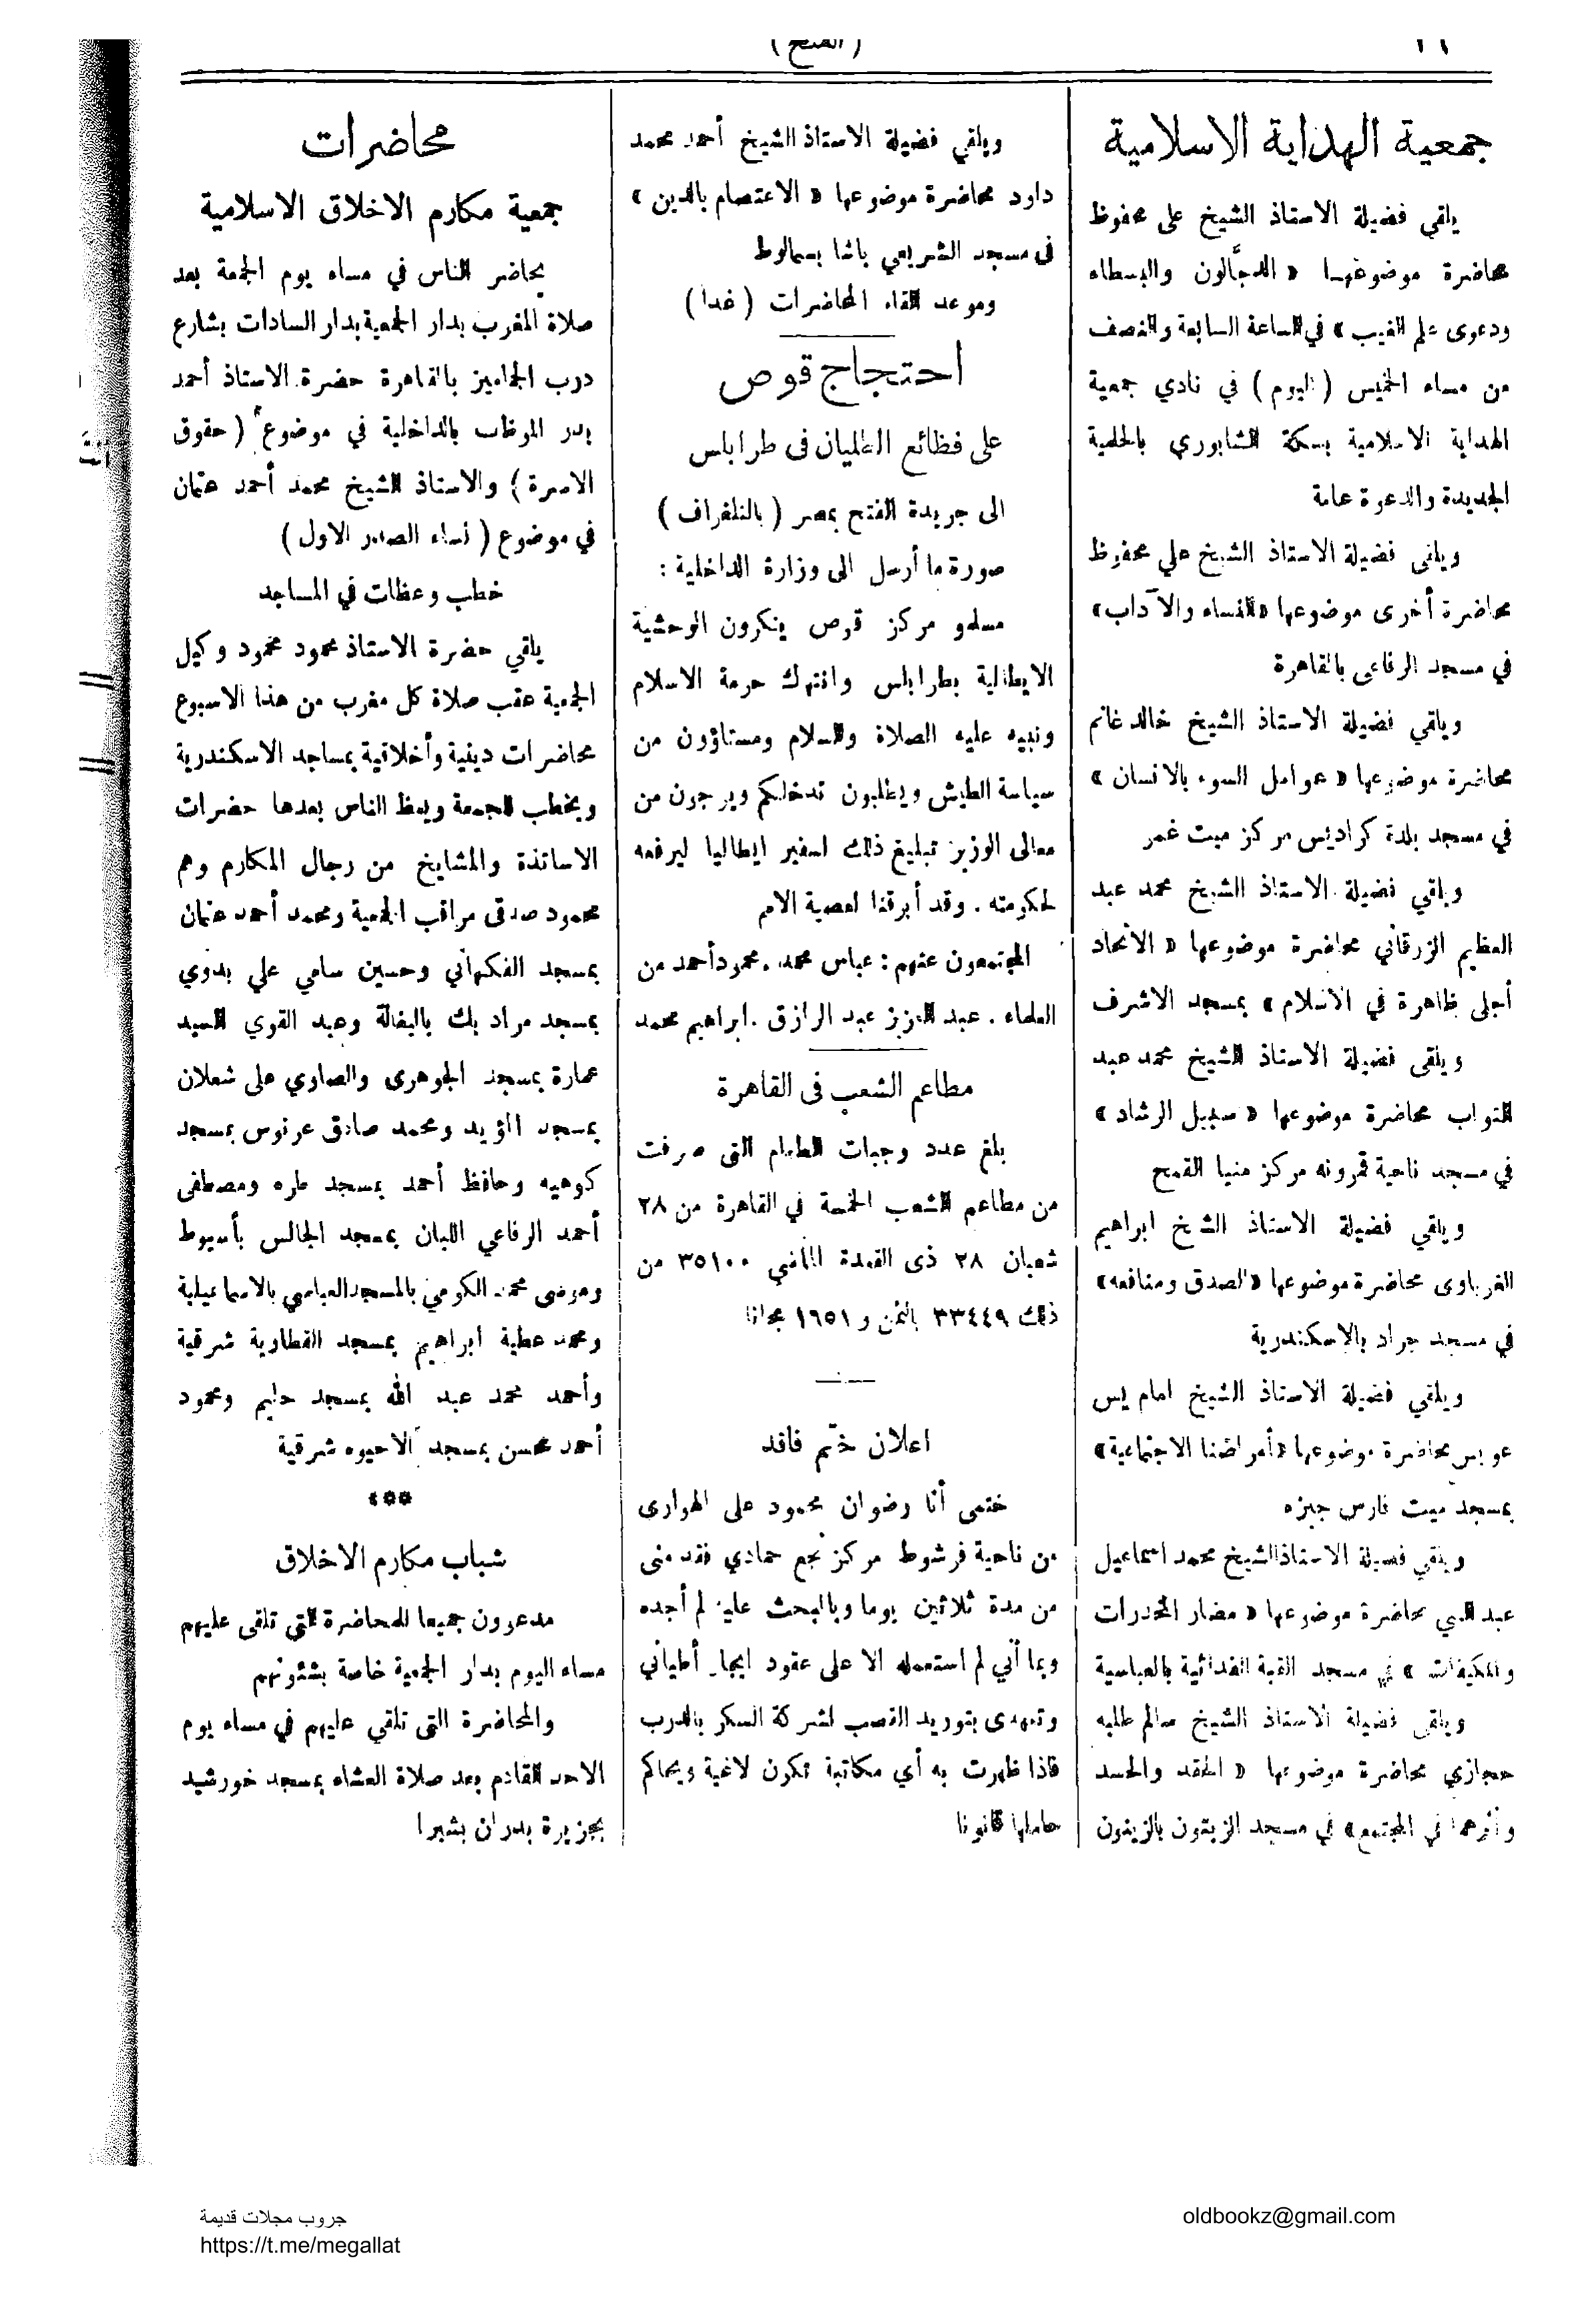 ( الفتح )
جمعية الهداية الاسلامية
يلقي فضيلة الاستاذ الشيخ على محفوظ
محاضرة موضوعها « الدجَّالون والبسطاء
ودعوى علم الغيب » في الساعة السابعة والنصف
من مساء الخميس ( اليوم ) في نادي جمعية
الهداية الاسلامية بسكة الشابوري بالحلمية
الجديدة والدعوة عامة
ويلقى فضيلة الاستاذ الشيخ علي محفوظ
محاضرة أخرى موضوعها « النساء والآداب »
في مسجد الرفاعى بالقاهرة
ويلقي فضيلة الاستاذ الشيخ خالد غانم
محاضرة موضوعها « عوامل السوء بالانسان »
في مسجد بلدة كراديس مركز ميت غمر
ويلقي فضيلة الاستاذ الشيخ محمد عبد
العظيم الزرقاني محاضرة موضوعها « الاتحاد
أجلى ظاهرة في الاسلام » بمسجد الاشرف
ويلقى فضيلة الاستاذ الشيخ محمد عبد
التواب محاضرة موضوعها « سبيل الرشاد »
في مسجد ناحية قمرونه مركز منيا القمح
ويلقي فضيلة الاستاذ الشيخ ابراهيم
الغرباوى محاضرة موضوعها « الصدق ومنافعه »
في مسجد جراد بالاسكندرية
ويلقي فضيلة الاستاذ الشيخ امام يس
عويس محاضرة موضوعها « أمراضنا الاجتماعية »
بمسجد ميت فارس جيزه
ويلقي فضيلة الاستاذ الشيخ محمد اسماعيل
عبد النبي محاضرة موضوعها « مضار المخدرات
والمكيفات » في مسجد القبة الفدائية بالعباسية
ويلقى فضيلة الاستاذ الشيخ سالم طلبه
حجازي محاضرة موضوعها « الحقد والحسد
وأثرهما في المجتمع » في مسجد الزيتون بالزيتون
ويلقي فضيلة الاستاذ الشيخ أحمد محمد
داود محاضرة موضوعها « الاعتصام بالدين »
في مسجد الشريعي باشا بسمالوط
وموعد القاء المحاضرات ( غدا )
احتجاج قوص
على فظائع الطليان فى طرابلس
الى جريدة الفتح بمصر ( بالتلغراف )
صورة ما أرسل الى وزارة الداخلية :
مسلمو مركز قوص ينكرون الوحشية
الايطالية بطرابلس وانتهاك حرمة الاسلام
ونبيه عليه الصلاة والسلام ومستاؤون من
سياسة الطيش ويطلبون تدخلكم ويرجون من
معالى الوزير تبليغ ذلك لسفير ايطاليا ليرفعه
لحكومته . وقد أبرقنا لعصبة الامم
المجتمعون عنهم : عباس محمد . محمود أحمد من
العلماء . عبد العزيز عبد الرازق . ابراهيم محمد
مطاعم الشعب فى القاهرة
بلغ عدد وجبات الطعام التى صرفت
من مطاعم الشعب الخمسة في القاهرة من ٢٨
شعبان ٢٨ ذى القعدة الماضي ٣٥١٠٠ من
ذلك ٣٣٤٤٩ بالثمن و ١٦٥١ مجانا
اعلان ختم فاقد
ختمى أنا رضوان محمود على الهوارى
من ناحية فرشوط مركز نجع حمادي فقد منى
من مدة ثلاثين يوما وبالبحث عليه لم أجده
وبما أني لم استعمله الا على عقود ايجار أطياني
وتعهدى بتوريد القصب لشركة السكر بالدرب
فاذا ظهرت به أي مكاتبة تكون لاغية ويحاكم
حاملها قانونا
محاضرات
جمعية مكارم الاخلاق الاسلامية
يحاضر الناس في مساء يوم الجمعة بعد
صلاة المغرب بدار الجمعية بدار السادات بشارع
درب الجماميز بالقاهرة حضرة الاستاذ أحمد
بدر الموظف بالداخلية في موضوع ( حقوق
الاسرة ) والاستاذ الشيخ محمد أحمد عثمان
في موضوع ( نساء الصدر الاول )
خطب وعظات في المساجد
يلقي حضرة الاستاذ محمود محمود وكيل
الجمعية عقب صلاة كل مغرب من هذا الاسبوع
محاضرات دينية وأخلاقية بمساجد الاسكندرية
ويخطب الجمعة ويعظ الناس بعدها حضرات
الاساتذة والمشايخ من رجال المكارم وهم
محمود صدقى مراقب الجمعية ومحمد أحمد عثمان
بمسجد الفكهاني وحسين سامي علي بدوي
بمسجد مراد بك بالبغالة وعبد القوي السيد
عمارة بمسجد الجوهرى والصاوي على شعلان
بمسجد المؤيد ومحمد صادق عرنوس بمسجد
كوهيه وحافظ أحمد بمسجد طره ومصطفى
أحمد الرفاعي اللبان بمسجد المجالس بأسيوط
وعوضى محمد الكومي بالمسجد العباسي بالاسماعيلية
ومحمد عطية ابراهيم بمسجد القطاوية شرقية
وأحمد محمد عبد الله بمسجد حليم ومحمود
أحمد محسن بمسجد الاحيوه شرقية
***
شباب مكارم الاخلاق
مدعوون جميعا للمحاضرة التي تلقى عليهم
مساء اليوم بدار الجمعية خاصة بشئونهم
والمحاضرة التى تلقي عليهم في مساء يوم
الاحد القادم بعد صلاة العشاء بمسجد خورشيد
بجزيرة بدران بشبرا
جروب مجلات قديمة
https://t.me/megallat
oldbookz@gmail.com